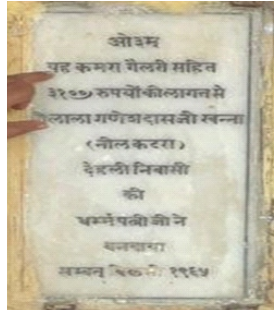 ओ३म्
यह कमरा गैलरी सहित
३१०० रुपयों की लागत से
लाला गणेशदास जी खन्ना
(नील कटरा)
देहली निवासी
की
धर्म्मपत्नी जी ने
बनवाया
सम्वत् १९६५